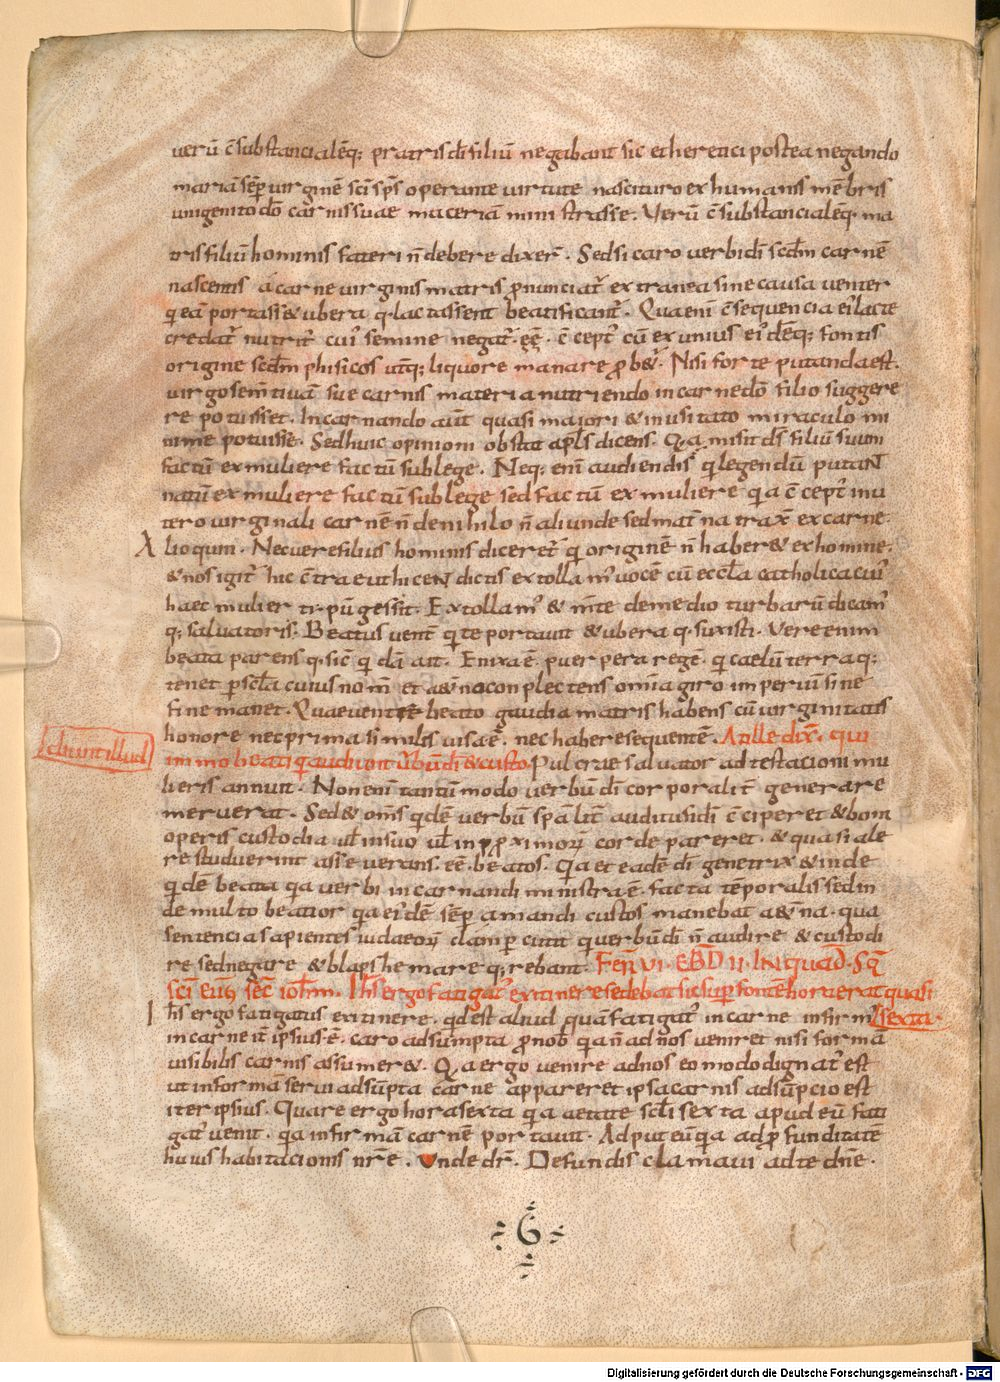 uerū c̄substancialēq; pr̄atris dī filiū negabant sic et heretici postea negando
mariā semp̄ uirginē sc̄i sp̄s operante uirtute nascituro ex humanis mēbris
unigenito dō carnis suae maceriam ministrasse. Verū c̄substancialēq. ma
tris filiū hominis fateri n̄ debere dixer̄. Sed si caro uerbi dī scdm̄ carnē
nascentis a carne uirginis matris p̄nunciat̄ extranea sine causa uenter
q eā portass& ubera q. lactassent beatificant̄. Qua eni c̄sequencia ei' lacte
credat̄ nutrit̄ cui' semine negat̄. ēē. c̄cept̄ cū ex unius ei'dēq; fontis
origine scdm̄ phisicos utq; liquore manare p̄b&̄. Nisi forte putanda est.
uirgo sem̄tiuā sue carnis materia nutriendo in carne dō filio suggere
re potuisset. Incarnando aūt quasi maiori & inusitato miraculo mi
nime potuisse. Sed huic opinioni obstat apls dicens. Qa misit ds filiū suum
factū ex muliere factū sub lege. Neq; eni audiendi s' q legendū putaNt
natū ex muliere factū sub lege sed factū ex muliere q a c̄cept̄ inu
tero uirginali carnē n̄ de nihilo n̄ aliunde sed mat̄na trax̄ ex carne.
Alioquin. Nec uere filius hominis diceret̄ q originē n̄ haber& ex homine.
& nos igit̄ hic c̄tra euthiceN dictis extollam' uocē cū eccl̄a catholica cui'
haec mulier tipū gessit. Extollam' & m̄te de medio turbarū dicam'
q; saluatoris. Beatus uent̄ qui te portauit & ubera q. suxisti. Vere enim
beata parens q. sic̄ q dā ait. Enixa ē. puerpera regē. qui caelū terraq;
tenet p̄ scl̄a cuius nom̄ et aet̄na complectens omīa giro imperiū sine
fine manet. Quae uentre beato gaudia matris habens cū uirginitatis
honore nec prima similis uisa ē. nec habere sequentē. At ille dix̄. qui
immo beati q audiunt u'bū dī & custo. Pulcrae saluator ad testacioni mu
lieris annuit. Non eni tantūmodo uerbū dī corporalit̄ generare
meruerat. Sed & om̄s q dē uerbū sp̄alit̄ auditu fidei c̄ciperet & boni
operis custodia ul' in suo ul' in p̄ximorū corde pareret. & quasi ale
re studuerint asseuerans. ēē. beatos. Qa et eadē dī genetrix & inde
q dē beata q a uerbi incarnandi ministra ē. facta tēporalis sed in
de multo beatior q a ei'dē semp̄ amandi custos manebat aet̄na. qua
sentencia sapientes iudaeorū clam p̄cutit qui uerbū dī n̄ audire & custodi
re sed negare & blasphemare q;rebant. FER̄ VI. EBD̄ II. IN quad̄. Sq̄
sc̄i euḡ sec̄ ioh̄m. Ih̄s ergo fatigat' ex itinere sedebat sic sup̄ fontē hora erat quasi
Ih̄s ergo fatigatus ex itinere. qd est aliud quā fatigat' in carne infirm' sexta.
in carne it̄ ipsius ē. caro adsumpta p̄ nob. q a n̄ ad nos ueniret nisi formā
uisibilis carnis assumer&. Qa ergo uenire ad nos eo modo dignat' est
ut in formā serui adsūpta carne appareret ipsa carnis adsūpcio est
iter ipsius. Quare ergo hora sexta q a aetate scl̄i sexta apud eū fati
gat' uenit. q a infirmā carnē portauit. Ad puteū q a ad p̄funditatē
huius habitacionis nr̄e. Vnde dr̄. De fundis clamaui ad te dn̄e.
6
Digitalisierung gefördert durch die Deutsche Forschungsgemeinschaft - DFG